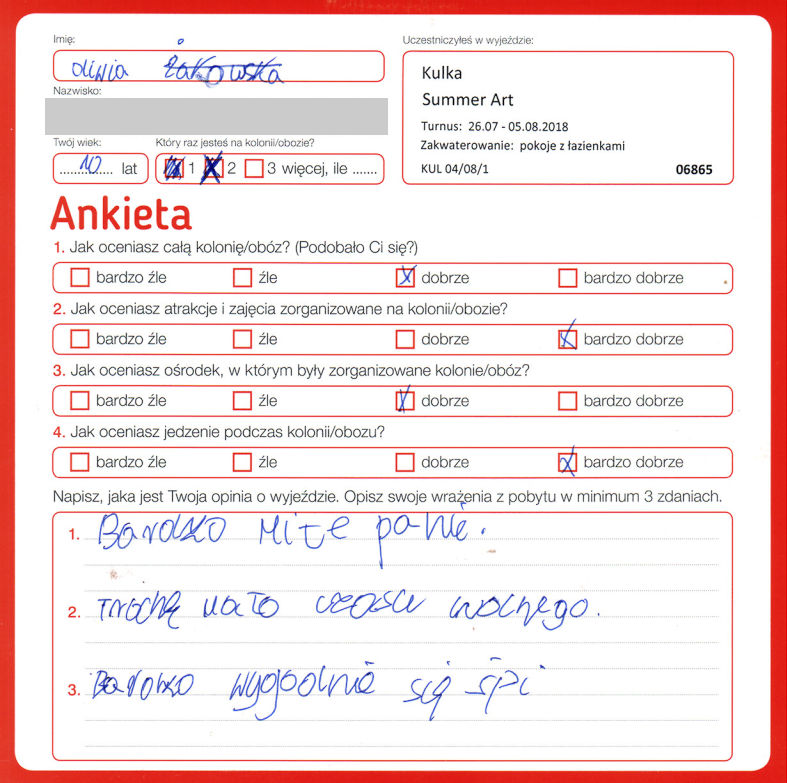 Imię:
Oliwia Żakowska
Nazwisko:
Twój wiek:
10 lat
Który raz jesteś na kolonii/obozie?
1 2 3 więcej, ile .......
Uczestniczyłeś w wyjeździe:
Kulka
Summer Art
Turnus: 26.07 - 05.08.2018
Zakwaterowanie: pokoje z łazienkami
KUL 04/08/1 06865
Ankieta
1. Jak oceniasz całą kolonię/obóz? (Podobało Ci się?)
bardzo źle źle dobrze bardzo dobrze
2. Jak oceniasz atrakcje i zajęcia zorganizowane na kolonii/obozie?
bardzo źle źle dobrze bardzo dobrze
3. Jak oceniasz ośrodek, w którym były zorganizowane kolonie/obóz?
bardzo źle źle dobrze bardzo dobrze
4. Jak oceniasz jedzenie podczas kolonii/obozu?
bardzo źle źle dobrze bardzo dobrze
Napisz, jaka jest Twoja opinia o wyjeździe. Opisz swoje wrażenia z pobytu w minimum 3 zdaniach.
1. Bardzo miłe panie.
2. Trochę mało czasu wolnego.
3. Bardzo wygodnie się śpi